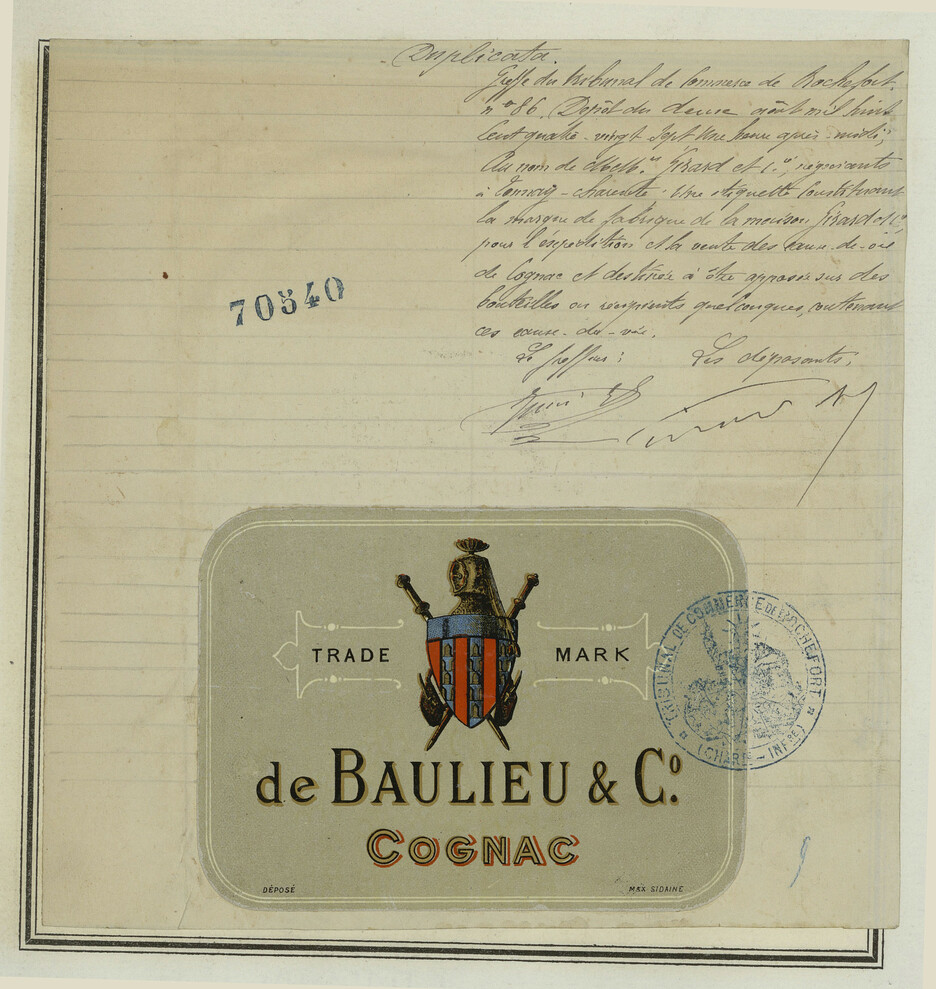 Duplicata.
Greffe du tribunal de Commerce de Rochefort.
n° 86. Dépôt du douze août mil huit
cent quatre-vingt sept une heure après-midi,
Au nom de MM. Girard et Cie, négociants
à Tonnay-Charente. Une étiquette constituant
la marque de fabrique de la maison Girard et Cie,
pour l'expédition et la vente des eaux-de-vie
de Cognac et destinée à être apposée sur des
bouteilles ou récipients quelconques, contenant
ces eaux-de-vie.
Le greffier; Les déposants,
70540
TRADE MARK
de BAULIEU & Co.
COGNAC
DÉPOSÉ MAX SIDAINE
TRIBUNAL DE COMMERCE DE ROCHEFORT
(CHARE-INFRE)